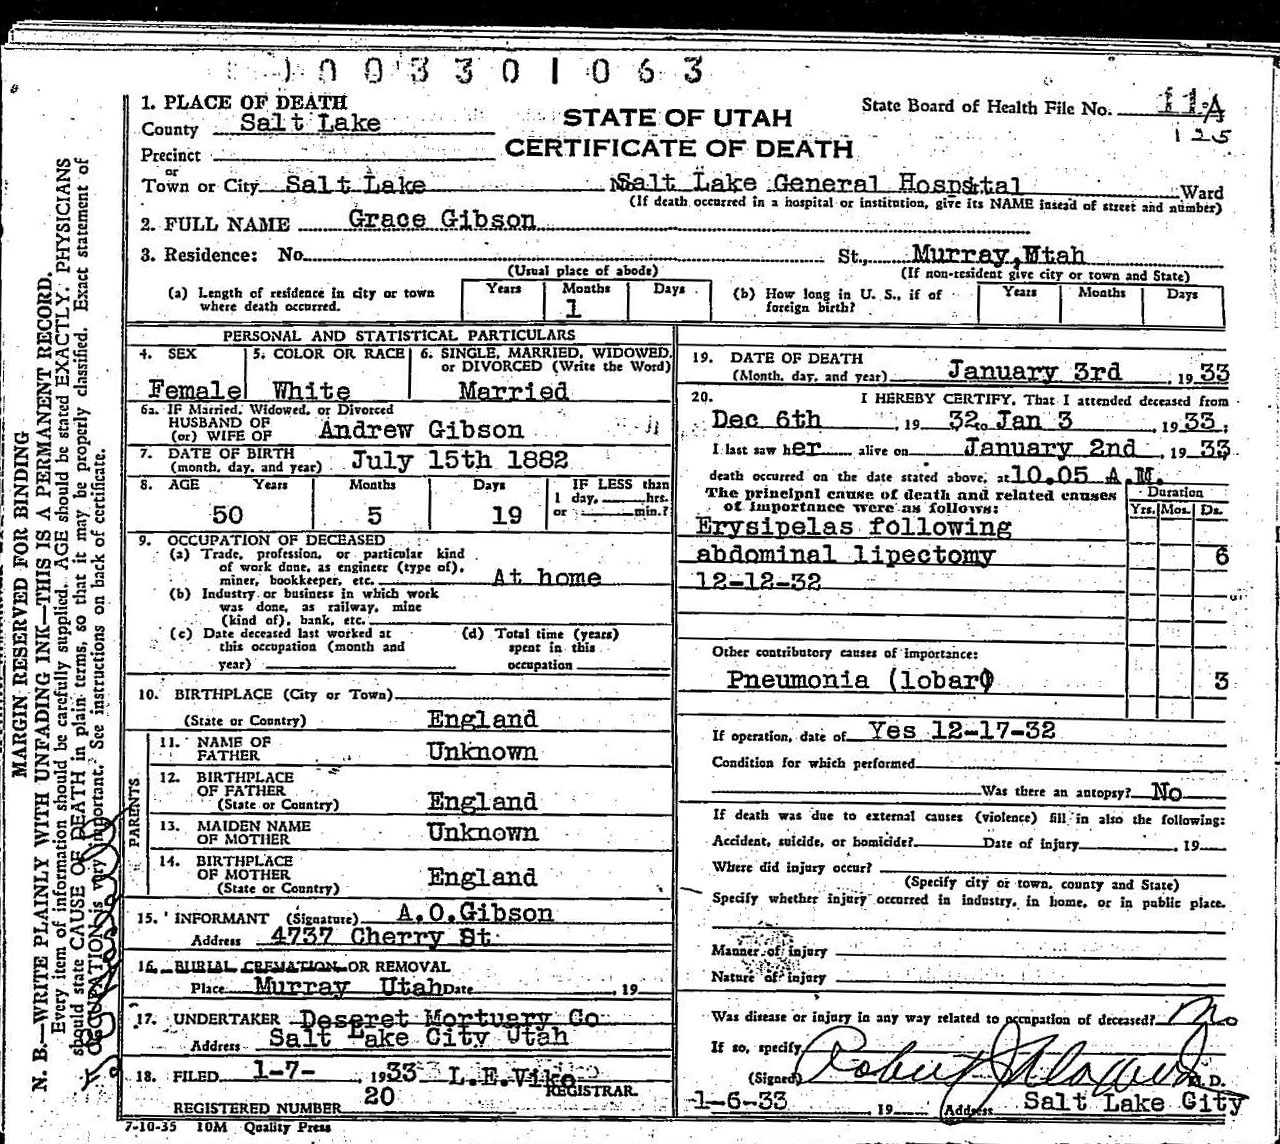 0 0 3 3 0 1 0 6 3
1. PLACE OF DEATH
County Salt Lake
STATE OF UTAH
CERTIFICATE OF DEATH
State Board of Health File No. 11A
125
Precinct
or
Town or City Salt Lake No. Salt Lake General Hospital Ward
(If death occurred in a hospital or institution, give its NAME instead of street and number)
2. FULL NAME Grace Gibson
3. Residence: No. St., Murray, Utah
(Usual place of abode) (If non-resident give city or town and State)
(a) Length of residence in city or town where death occurred. Years Months 1 Days
(b) How long in U. S., if of foreign birth? Years Months Days
PERSONAL AND STATISTICAL PARTICULARS
4. SEX Female
5. COLOR OR RACE White
6. SINGLE, MARRIED, WIDOWED, or DIVORCED (Write the Word) Married
6a. IF Married, Widowed, or Divorced
HUSBAND OF
(or) WIFE OF Andrew Gibson
7. DATE OF BIRTH
(month, day, and year) July 15th 1882
8. AGE Years 50 Months 5 Days 19
IF LESS than
1 day, hrs.
or min.?
9. OCCUPATION OF DECEASED
(a) Trade, profession, or particular kind
of work done, as engineer (type of),
miner, bookkeeper, etc. At home
(b) Industry or business in which work
was done, as railway, mine
(kind of), bank, etc.
(c) Date deceased last worked at
this occupation (month and
year)
(d) Total time (years)
spent in this
occupation
10. BIRTHPLACE (City or Town)
(State or Country) England
PARENTS
11. NAME OF
FATHER Unknown
12. BIRTHPLACE
OF FATHER
(State or Country) England
13. MAIDEN NAME
OF MOTHER Unknown
14. BIRTHPLACE
OF MOTHER
(State or Country) England
15. INFORMANT (Signature) A.O.Gibson
Address 4737 Cherry St
16. BURIAL CREMATION OR REMOVAL
Place Murray Utah Date , 19
17. UNDERTAKER Deseret Mortuary Co
Address Salt Lake City Utah
18. FILED 1-7- , 1933 L.E.Viko
REGISTRAR
REGISTERED NUMBER 20
7-10-35 10M Quality Press
19. DATE OF DEATH
(Month, day, and year) January 3rd , 19 33
20. I HEREBY CERTIFY, That I attended deceased from
Dec 6th , 19 32 to Jan 3 , 19 33,
I last saw her alive on January 2nd , 19 33,
death occurred on the date stated above, at 10.05 A.M.
The principal cause of death and related causes
of importance were as follows:
Duration
Yrs. Mos. Ds.
Erysipelas following
abdominal lipectomy 6
12-12-32
Other contributory causes of importance:
Pneumonia (lobar) 3
If operation, date of Yes 12-17-32
Condition for which performed
Was there an autopsy? No
If death was due to external causes (violence) fill in also the following:
Accident, suicide, or homicide? Date of injury , 19
Where did injury occur?
(Specify city or town, county and State)
Specify whether injury occurred in industry, in home, or in public place.
Manner of injury
Nature of injury
Was disease or injury in any way related to occupation of deceased? No
If so, specify
(Signed) M. D.
1-6-33 19 Address Salt Lake City
MARGIN RESERVED FOR BINDING
N. B.—WRITE PLAINLY WITH UNFADING INK—THIS IS A PERMANENT RECORD.
Every item of information should be carefully supplied. AGE should be stated EXACTLY. PHYSICIANS
should state CAUSE OF DEATH in plain terms, so that it may be properly classified. Exact statement of
OCCUPATION is very important. See instructions on back of certificate.